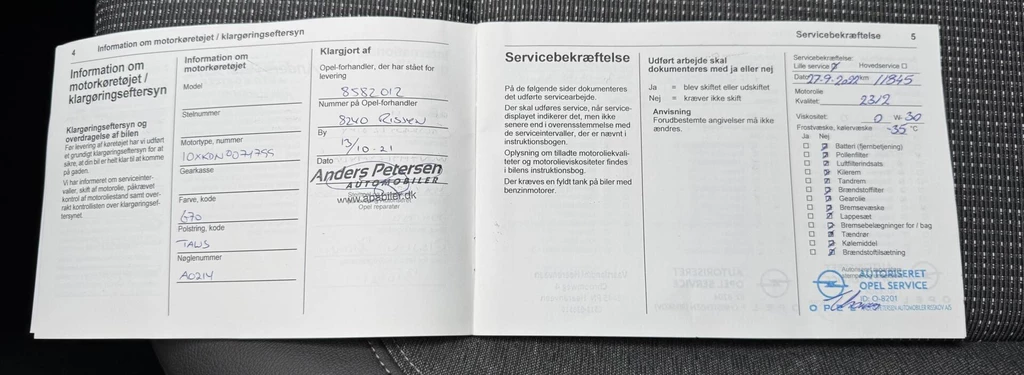 4 Information om motorkøretøjet / klargøringseftersyn
Information om
motorkøretøjet /
klargøringseftersyn
Klargøringseftersyn og
overdragelse af bilen
Før levering af køretøjet har vi udført
et grundigt klargøringseftersyn for at
sikre, at din bil er helt klar til at komme
på gaden.
Vi har informeret om serviceinter-
valler, skift af motorolie, påkrævet
kontrol af motoroliestand samt over-
rakt kontrollisten over klargøringsef-
tersynet.
Information om
motorkøretøjet
Model
Stelnummer
Motortype, nummer
10XKDN0071799
Gearkasse
Farve, kode
G70
Polstring, kode
TAUS
Nøglenummer
A0214
Klargjort af
Opel-forhandler, der har stået for
levering
8582012
Nummer på Opel-forhandler
8240 Risskov
By
13/10-21
Dato
Anders Petersen
AUTOMOBILER
www.apabiler.dk
Opel reparatør
Servicebekræftelse
På de følgende sider dokumenteres
det udførte servicearbejde.
Der skal udføres service, når service-
displayet indikerer det, men ikke
senere end i overensstemmelse med
de serviceintervaller, der er nævnt i
instruktionsbogen.
Oplysning om tilladte motoroliekvali-
teter og motorolieviskositeter findes
i bilens instruktionsbog.
Der kræves en fyldt tank på biler med
benzinmotorer.
Udført arbejde skal
dokumenteres med ja eller nej
Ja = blev skiftet eller udskiftet
Nej = kræver ikke skift
Anvisning
Forudbestemte angivelser må ikke
ændres.
Servicebekræftelse 5
Servicebekræftelse:
Lille service Hovedservice
Dato 27-9-2022 km 11845
Motorolie:
Kvalitet: 2312
Viskositet: 0 W- 30
Frostvæske, kølervæske -35 °C
Ja Nej
Batteri (fjernbetjening)
Pollenfilter
Luftfilterindsats
Kilerem
Tandrem
Brændstoffilter
Gearolie
Bremsevæske
Lappesæt
Bremsebelægninger for / bag
Tændrør
Kølemiddel
Brændstoftilsætning
AUTORISERET
OPEL SERVICE
ID: O-8201
OPEL PETERSEN AUTOMOBILER RISSKOV A/S